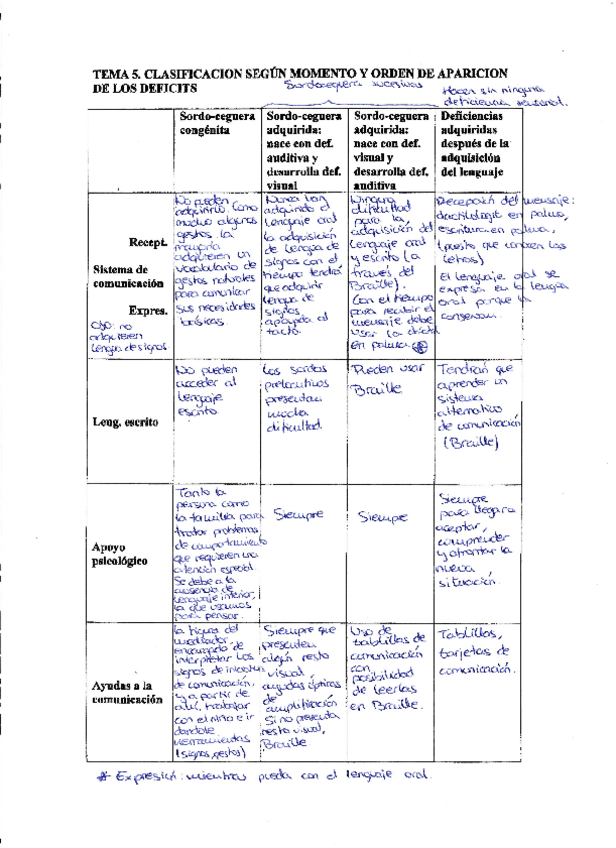 TEMA 5. CLASIFICACION SEGÚN MOMENTO Y ORDEN DE APARICION
DE LOS DEFICITS
Sordoceguera sucesivas
Nacen sin ninguna
deficiencia sensorial.
Sordo-ceguera
congénita
Sordo-ceguera
adquirida:
nace con def.
auditiva y
desarrolla def.
visual
Sordo-ceguera
adquirida:
nace con def.
visual y
desarrolla def.
auditiva
Deficiencias
adquiridas
después de la
adquisición
del lenguaje
Recept.
Sistema de
comunicación
Expres.
OJO: no
adquieren
lengua de signos.
No pueden
adquirirlo como
mucho algunos
gestos. La
mayoría
adquieren un
vocabulario de
gestos naturales
para comunicar
sus necesidades
básicas.
Nunca han
adquirido el
lenguaje oral
la adquisición
de lengua de
signos con el
tiempo tendrá
que adquirir
lengua de
signos
apoyada al
tacto.
Ninguna
dificultad
para la
adquisición del
lenguaje oral
y escrito (a
través del
Braille).
Con el tiempo
para recibir el
mensaje debe
usar la
en palma
Recepción del mensaje:
dactilología en palma,
escritura en palma,
(puesto que conocen las
letras)
El lenguaje oral se
expresa en la lengua
oral porque la
conservan.
Leng. escrito
No pueden
acceder al
lenguaje
escrito
Los sordos
prelocutivos
presentan
mucha
dificultad.
Pueden usar
Braille
Tendrán que
aprender un
sistema
alternativo
de comunicación
(Braille)
Apoyo
psicológico
Tanto la
persona como
la familia para
tratar problemas
de comportamiento
que requieren una
atención especial.
Se debe a la
ausencia de
lenguaje interior,
la que usamos
para pensar.
Siempre
Siempre
Siempre
para llegar a
aceptar,
comprender
y afrontar la
nueva
situación.
Ayudas a la
comunicación
la figura del
mediador,
encargado de
interpretar los
signos de
de comunicación,
y a partir de
ahí, trabajar
con el niño e ir
dandole
herramientas
(signos, gestos)
Siempre que
presenten
algún resto
visual,
ayudas ópticas
de
amplificación
Si no presenta
resto visual,
Braille
Uso de
tablillas de
comunicación
con
posibilidad
de leerlas
en Braille.
Tablillas,
tarjetas de
comunicación.
* Expresión: mientras pueda con el lenguaje oral.